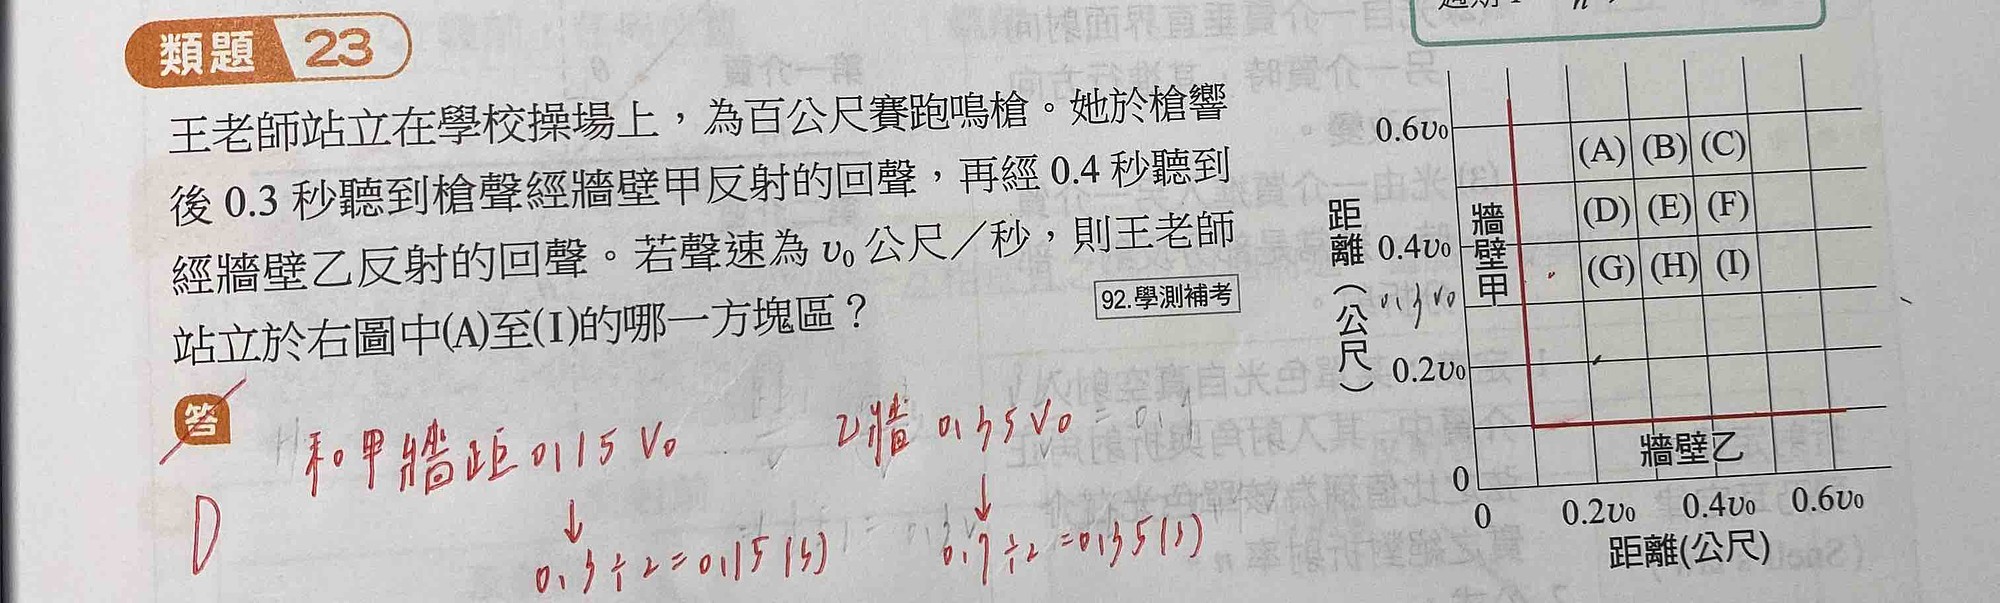 類題 23
王老師站立在學校操場上，為百公尺賽跑鳴槍。她於槍響
後 0.3 秒聽到槍聲經牆壁甲反射的回聲，再經 0.4 秒聽到
經牆壁乙反射的回聲。若聲速為 v₀ 公尺／秒，則王老師
站立於右圖中(A)至(I)的哪一方塊區？
92.學測補考
答
D
和甲牆距 0.15 V₀
乙牆 0.35 V₀
↓
↓
0.3÷2=0.15(s)
0.7÷2=0.35(s)
距離（公尺）
0.6v₀
0.4v₀
0.3v₀
0.2v₀
0
牆壁甲
(A) (B) (C)
(D) (E) (F)
(G) (H) (I)
牆壁乙
0 0.2v₀ 0.4v₀ 0.6v₀
距離(公尺)